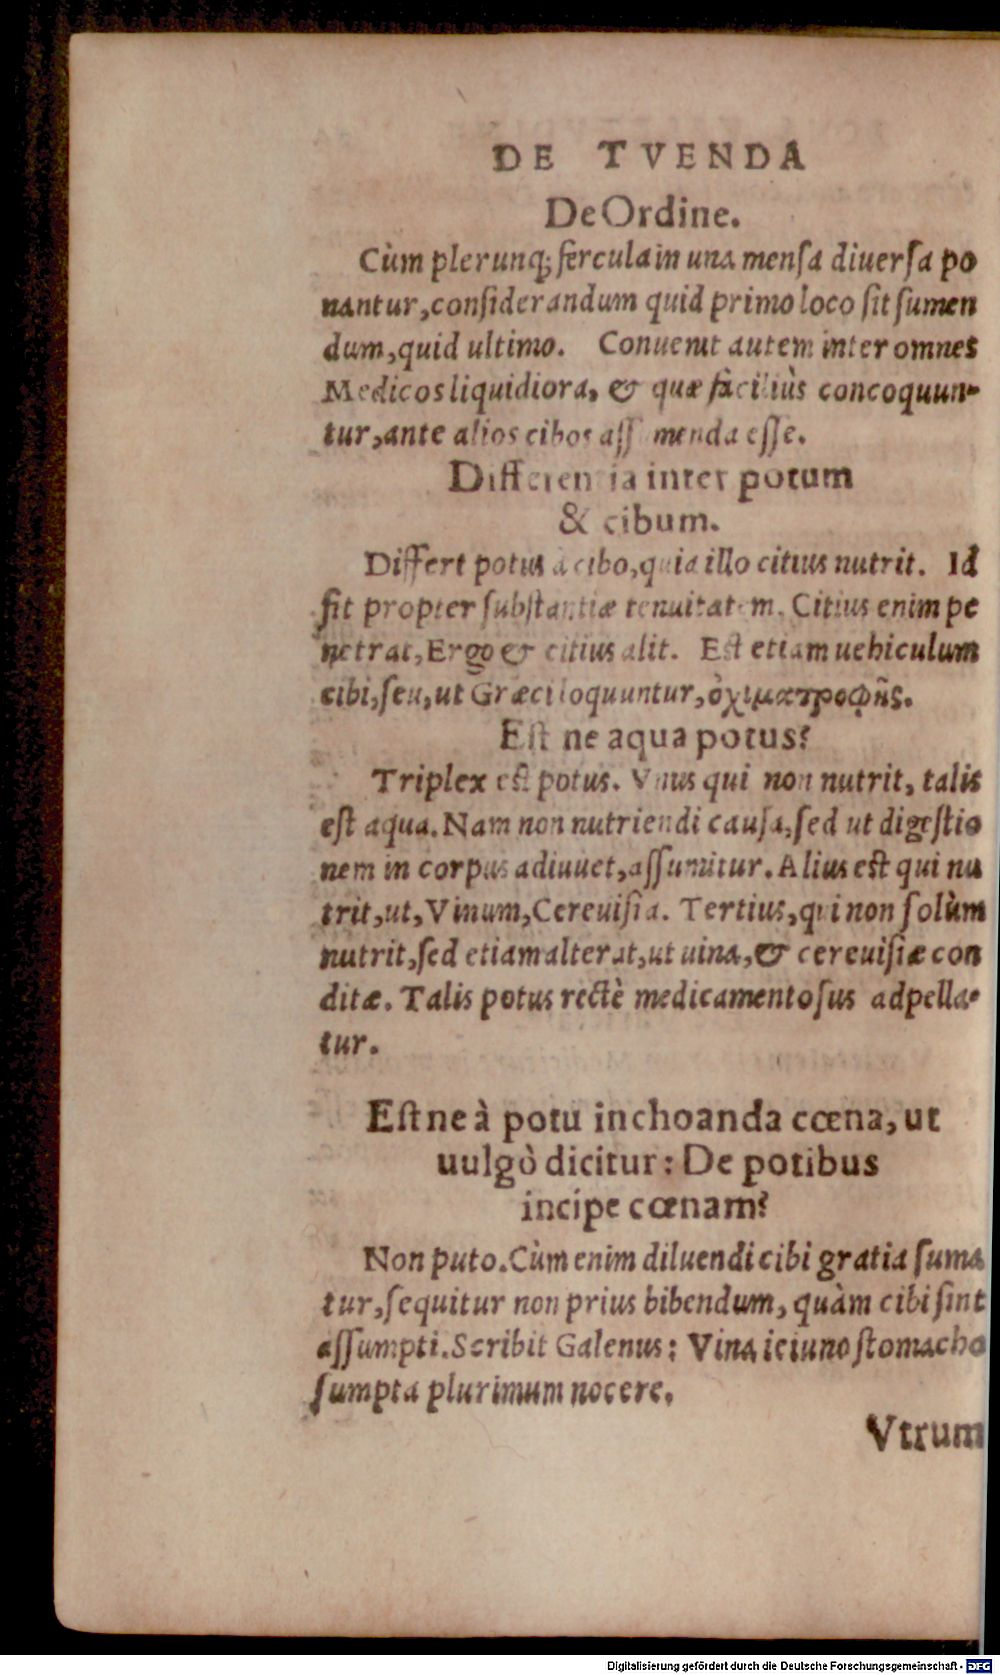 DE TVENDA
De Ordine.
Cùm plerunq; fercula in una mensa diuersa po
nantur, considerandum quid primo loco sit sumen
dum, quid ultimo. Conuenit autem inter omnes
Medicos liquidiora, & quæ faciliùs concoquun-
tur, ante alios cibos assumenda esse.
Differentia inter potum
& cibum.
Differt potus à cibo, quia illo citius nutrit. Id
fit propter substantiæ tenuitatem. Citius enim pe
netrat, Ergo & citius alit. Est etiam uehiculum
cibi, seu, ut Græci loquuntur, ὀχιματροφῆς.
Est ne aqua potus?
Triplex est potus. Vnus qui non nutrit, talis
est aqua. Nam non nutriendi causa, sed ut digestio
nem in corpus adiuuet, assumitur. Alius est qui nu
trit, ut, Vinum, Cereuisia. Tertius, qui non solùm
nutrit, sed etiam alterat, ut uina, & cereuisiæ con
ditæ. Talis potus rectè medicamentosus adpella-
tur.
Est ne à potu inchoanda cœna, ut
uulgò dicitur: De potibus
incipe cœnam?
Non puto. Cùm enim diluendi cibi gratia suma
tur, sequitur non prius bibendum, quàm cibi sint
assumpti. Scribit Galenus: Vina ieiuno stomacho
sumpta plurimum nocere.
Vtrum
Digitalisierung gefördert durch die Deutsche Forschungsgemeinschaft - DFG